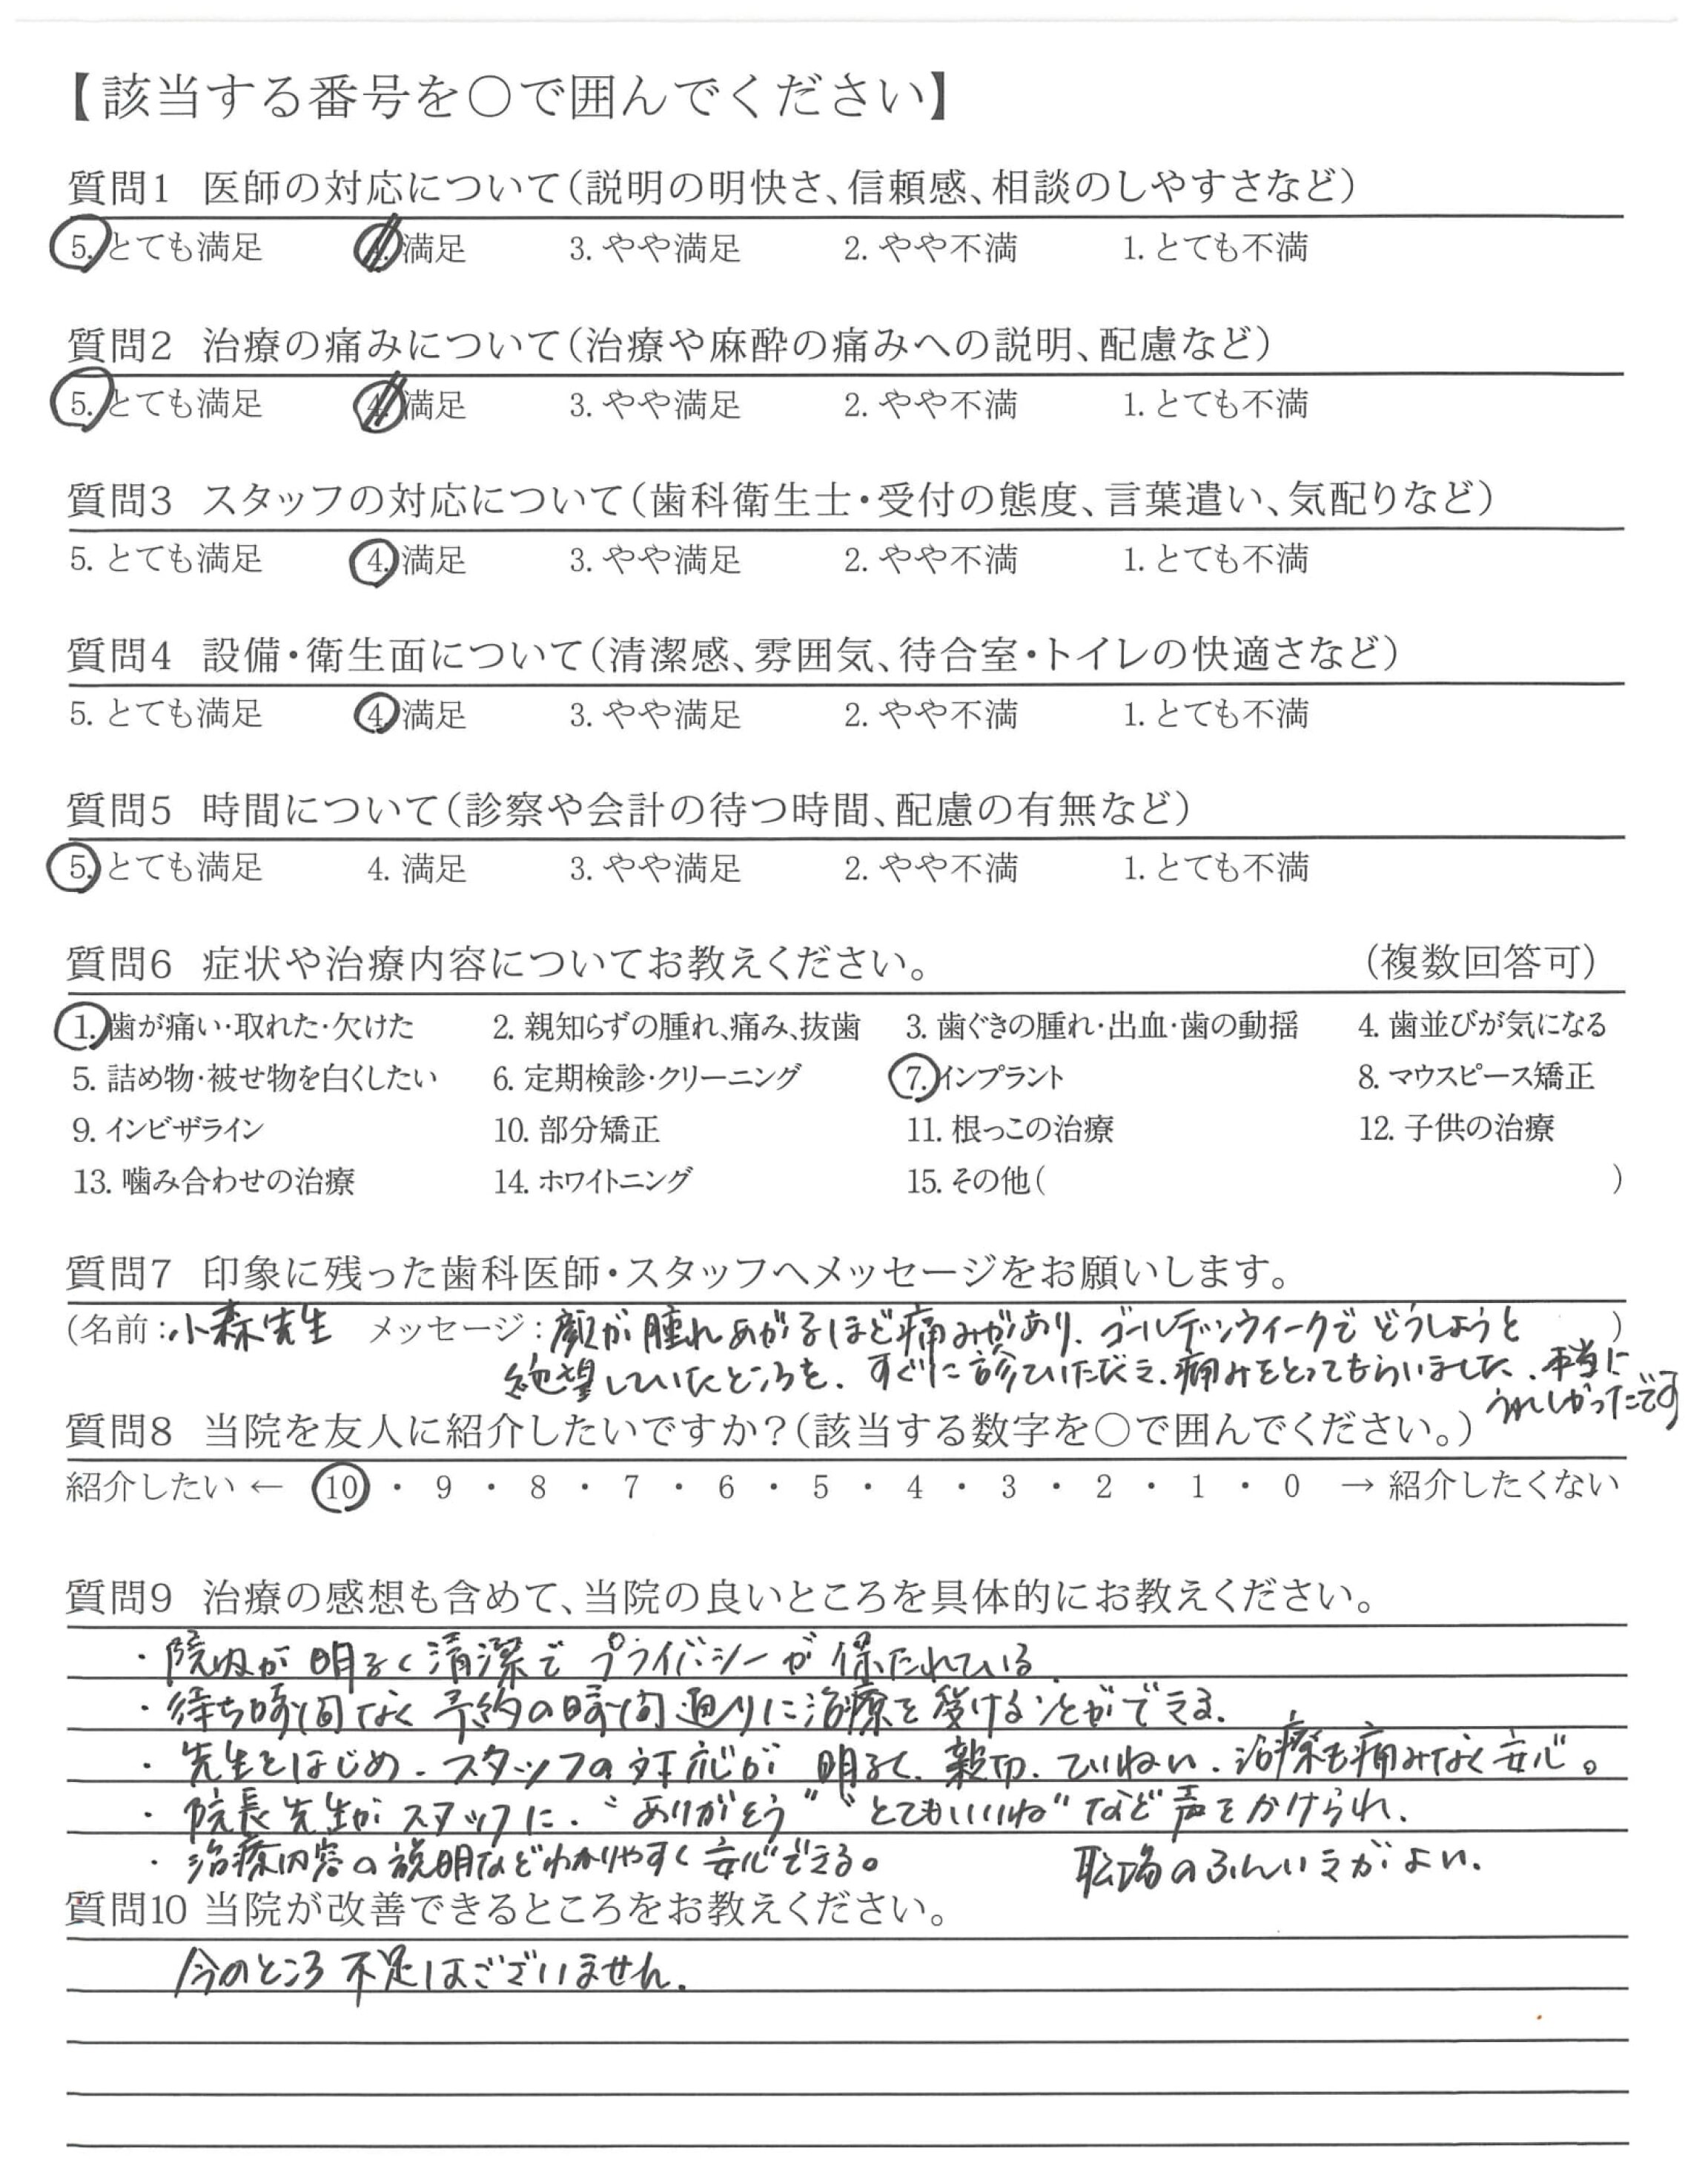 【該当する番号を○で囲んでください】
質問1 医師の対応について(説明の明快さ、信頼感、相談のしやすさなど)
5. とても満足 4. 満足 3. やや満足 2. やや不満 1. とても不満
質問2 治療の痛みについて(治療や麻酔の痛みへの説明、配慮など)
5. とても満足 4. 満足 3. やや満足 2. やや不満 1. とても不満
質問3 スタッフの対応について(歯科衛生士・受付の態度、言葉遣い、気配りなど)
5. とても満足 4. 満足 3. やや満足 2. やや不満 1. とても不満
質問4 設備・衛生面について(清潔感、雰囲気、待合室・トイレの快適さなど)
5. とても満足 4. 満足 3. やや満足 2. やや不満 1. とても不満
質問5 時間について(診察や会計の待つ時間、配慮の有無など)
5. とても満足 4. 満足 3. やや満足 2. やや不満 1. とても不満
質問6 症状や治療内容についてお教えください。 (複数回答可)
1. 歯が痛い・取れた・欠けた 2. 親知らずの腫れ、痛み、抜歯 3. 歯ぐきの腫れ・出血・歯の動揺 4. 歯並びが気になる
5. 詰め物・被せ物を白くしたい 6. 定期検診・クリーニング 7. インプラント 8. マウスピース矯正
9. インビザライン 10. 部分矯正 11. 根っこの治療 12. 子供の治療
13. 噛み合わせの治療 14. ホワイトニング 15. その他( )
質問7 印象に残った歯科医師・スタッフへメッセージをお願いします。
(名前:小森先生 メッセージ:顔が腫れあがるほど痛みがあり、ゴールデンウィークでどうしようと )
絶望していたところを、すぐに診ていただき、痛みをとってもらいました。本当に
うれしかったです
質問8 当院を友人に紹介したいですか?(該当する数字を○で囲んでください。)
紹介したい ← 10 ・ 9 ・ 8 ・ 7 ・ 6 ・ 5 ・ 4 ・ 3 ・ 2 ・ 1 ・ 0 → 紹介したくない
質問9 治療の感想も含めて、当院の良いところを具体的にお教えください。
・院内が明るく清潔でプライバシーが保たれている
・待ち時間なく予約の時間通りに治療を受けることができる.
・先生をはじめ、スタッフの対応が明るく、親切、ていねい、治療も痛みなく安心。
・院長先生がスタッフに、"ありがとう" "とてもいいね"など声をかけられ、
・治療内容の説明などわかりやすく安心できる。 職場のふんいきがよい.
質問10 当院が改善できるところをお教えください。
今のところ不足はございません.